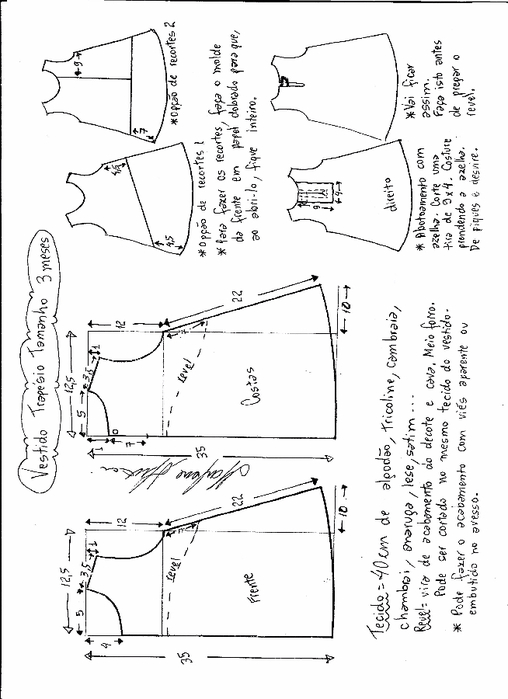 Vestido Trapésio Tamanho 3 meses
12,5
5
3,5
1
12
4
35
22
revel
Frente
10
12,5
5
3,5
1
12
1
7
35
22
revel
Costas
10
Tecido = 40cm de algodão, tricoline, cambraia,
chambrai, anarruga, lese, setim ...
Revel= vira de acabamento do decote e cava. Meio forro.
Pode ser cortado no mesmo tecido do vestido.
* Pode fazer o acabamento com viés aparente ou
embutido no avesso.
4,5
4,5
* Opção de recortes 1
9
7
* Opção de recortes 2
* Para fazer os recortes, faça o molde
da frente em papel dobrado para que,
ao abri-lo, fique inteiro.
9
9
direito
* Abotoamento com
azelha. Corte uma
tira de 9x4. Costure
prendendo a azelha.
De piques e desvire.
* Vai ficar
assim.
Faça isto antes
de pregar o
revel.